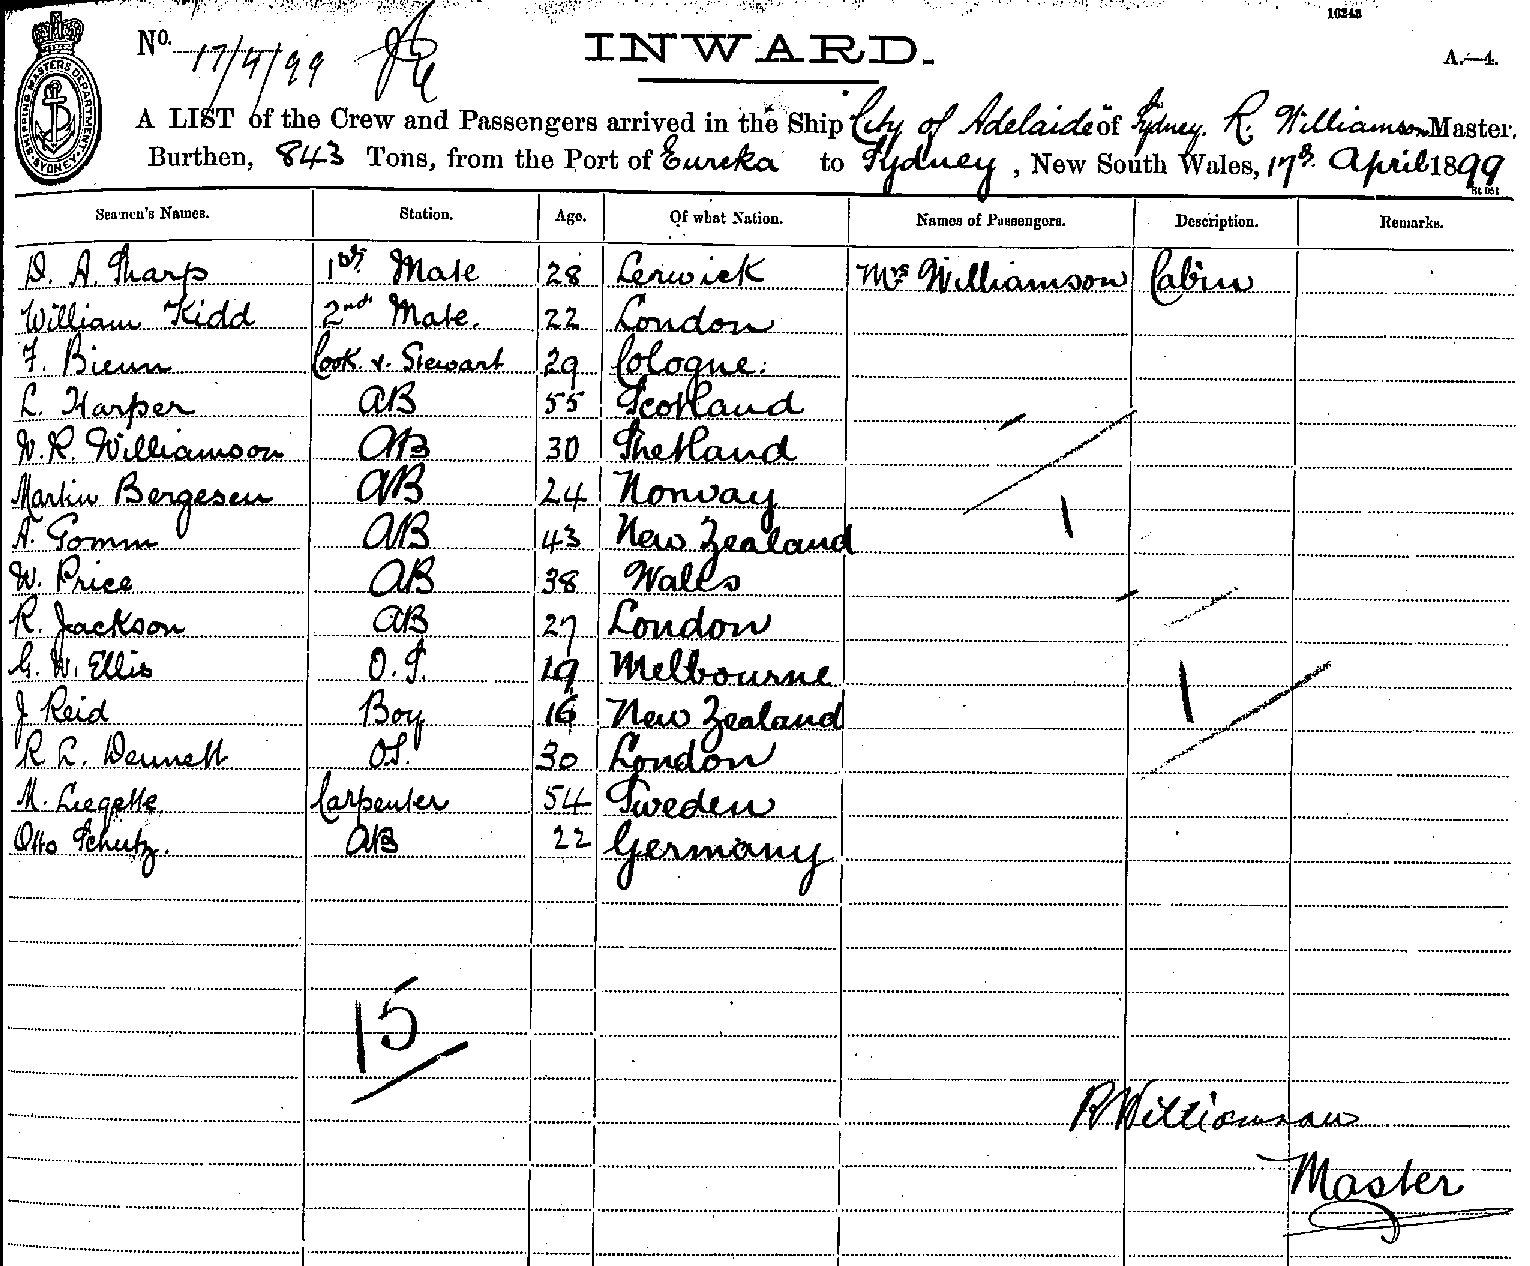 10243
No. 17/4/99
INWARD.
A.—4.
SHIPPING MASTERS DEPARTMENT SYDNEY
A LIST of the Crew and Passengers arrived in the Ship City of Adelaide of Sydney. R. Williamson Master,
Burthen, 843 Tons, from the Port of Eureka to Sydney, New South Wales, 17th April 1899
Seamen's Names. Station. Age. Of what Nation. Names of Passengers. Description. Remarks.
D. A. Sharp 1st Mate 28 Lerwick Mrs Williamson Cabin
William Kidd 2nd Mate. 22 London
F. Bieun Cook & Stewart 29 Cologne.
L. Harper AB 55 Scotland
W. R. Williamson AB 30 Shetland
Martin Bergesen AB 24 Norway
A. Gomm AB 43 New Zealand
W. Price AB 38 Wales
R. Jackson AB 27 London
G. W. Ellis O.S. 19 Melbourne
J Reid Boy 16 New Zealand
R L. Dennett OS. 30 London
M. Liegette Carpenter 54 Sweden
Otto Schutz. AB 22 Germany
1
1
15
R Williamson
Master